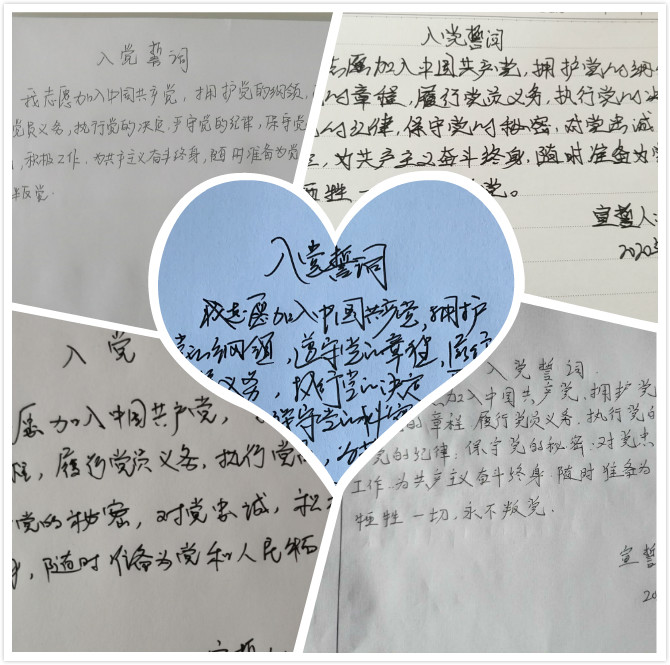 入党誓词
我志愿加入中国共产党,拥护党的纲领,
党员义务,执行党的决定,严守党的纪律,保守党
,积极工作.为共产主义奋斗终身,随时准备为党
叛党.
入党誓词
志愿加入中国共产党,拥护党的纲
的章程,履行党员义务,执行党的决
的纪律,保守党的秘密,对党忠诚
,为共产主义奋斗终身,随时准备为
牺牲一
党。
宣誓人:
2020年
入党誓词
我志愿加入中国共产党,拥护
党的纲领,遵守党的章程,履行
义务,执行党的决定
保守党的
入党
愿加入中国共产党,
程,履行党员义务,执行党
党的秘密,对党忠诚,积
,随时准备为党和人民牺
宣誓
入党誓词
加入中国共产党,拥护党
的章程.履行党员义务.执行党的
党的纪律;保守党的秘密;对党忠
工作.为共产主义奋斗终身.随时准备为
牺牲一切,永不叛党.
宣誓
20